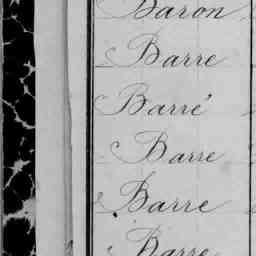 Baron
Barre
Barré
Barre
Barre
Barre